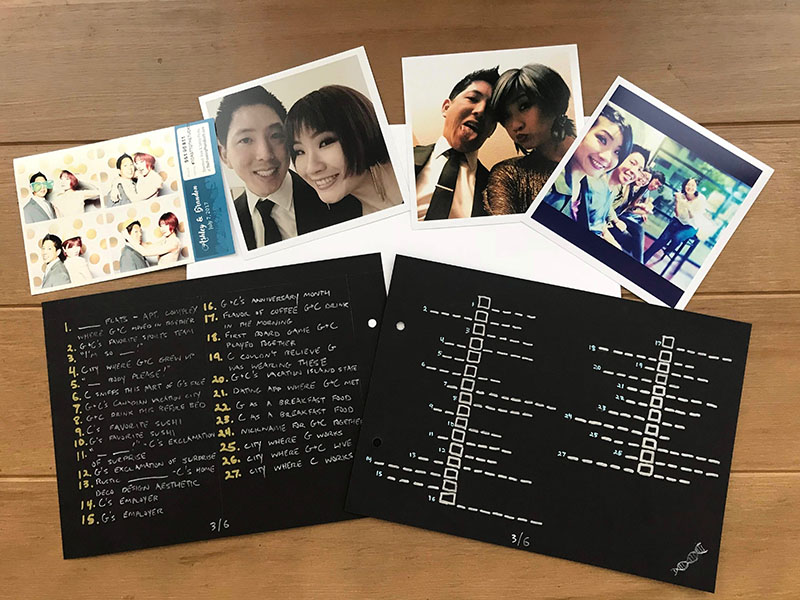 Ashley & Brandon
July 7, 2017
1. ___ FLATS - APT. COMPLEX
WHERE G+C MOVED IN TOGETHER
2. G+C'S FAVORITE SPORTS TEAM
3. "I'M SO ___"
4. CITY WHERE G+C GREW UP
5. "___ BODY PLEASE!"
6. C SNIFFS THIS PART OF G'S FACE
7. G+C'S CANADIAN VACATION CITY
8. G+C DRINK THIS BEFORE BED
9. C'S FAVORITE SUSHI
10. G'S FAVORITE SUSHI
11. "___!" - C'S EXCLAMATION
OF SURPRISE
12. G'S EXCLAMATION OF SURPRISE
13. RUSTIC ___ - C'S HOME
DECO DESIGN AESTHETIC
14. C'S EMPLOYER
15. G'S EMPLOYER
16. G+C'S ANNIVERSARY MONTH
17. FLAVOR OF COFFEE G+C DRINK
IN THE MORNING
18. FIRST BOARD GAME G+C
PLAYED TOGETHER
19. C COULDN'T BELIEVE G
WAS WEARING THESE
20. G+C'S VACATION ISLAND STATE
21. DATING APP WHERE G+C MET
22. G AS A BREAKFAST FOOD
23. C AS A BREAKFAST FOOD
24. NICKNAME FOR G+C TOGETHER
25. CITY WHERE G WORKS
26. CITY WHERE G+C LIVE
27. CITY WHERE C WORKS
3/6
1
2
3
4
5
6
7
8
9
10
11
12
13
14
15
16
17
18
19
20
21
22
23
24
25
26
27
3/6